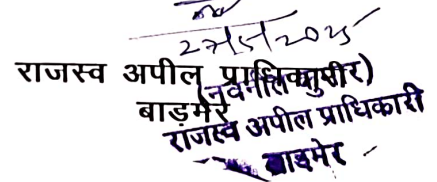 27/5/2025
राजस्व अपील प्राधिकारी
(नवनीत कुमार)
बाड़मेर
राजस्व अपील प्राधिकारी
बाडमेर